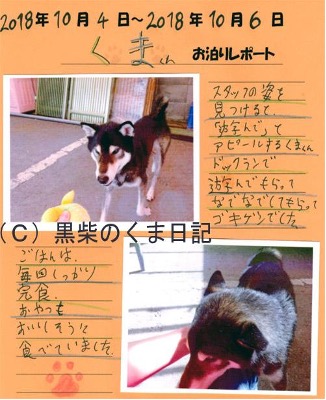 2018年10月4日～2018年10月6日
くまくん お泊りレポート
スタッフの姿を
見つけると、
「遊んで」って
アピールするくまくん
ドックランで
遊んでもらって
なでなでしてもらって
ゴキゲンでした。
(C) 黒柴のくま日記
ごはんは、
毎回しっかり
完食。
おやつも
おいしそうに
食べていました。